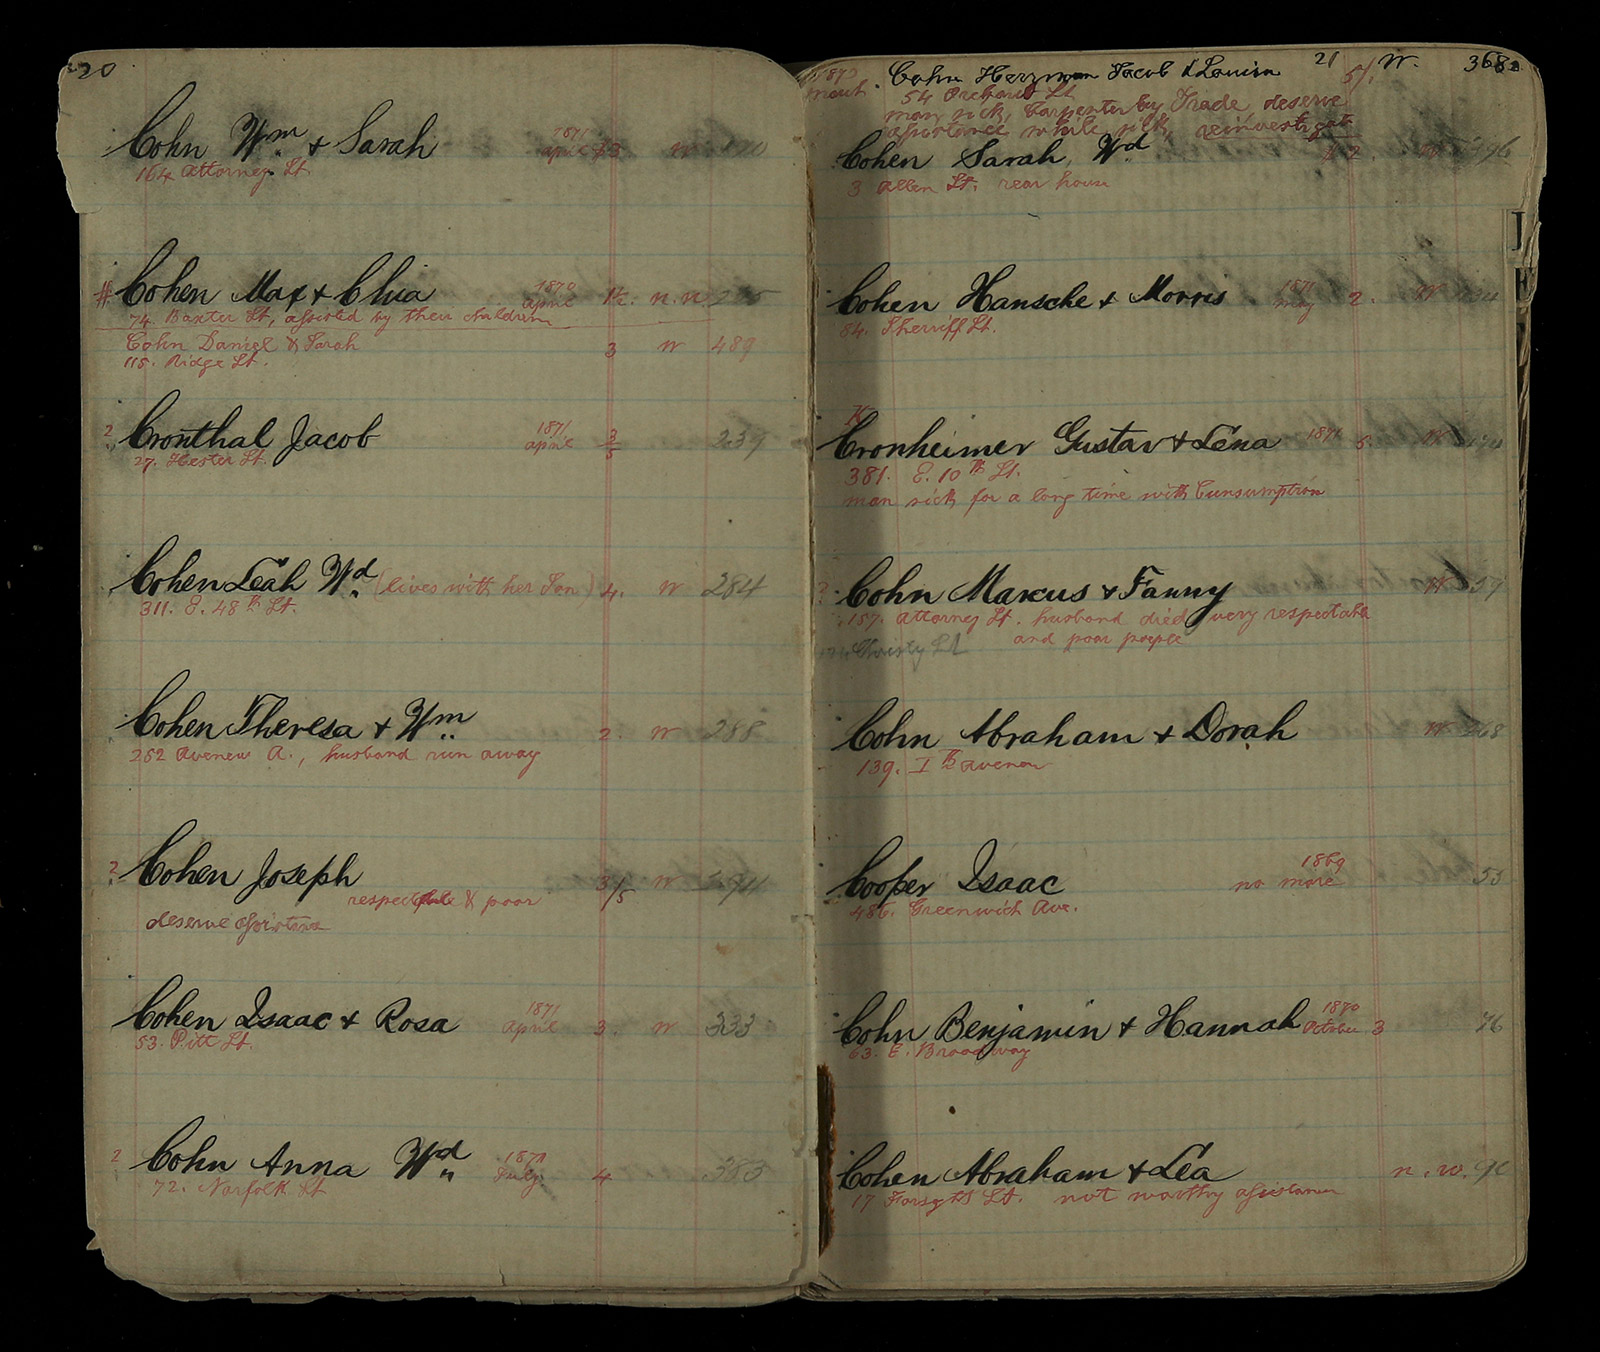 20
Cohn Wm + Sarah 1871 april 3 W
164 Attorney St.
# Cohen Max + Chia 1870 april 1½. n.n.
74. Baxter St, assisted by their children
Cohn Daniel & Sarah 3 W 489
115. Ridge St.
2 Cronthal Jacob 1871 april 3/5 239
27. Hester St.
Cohen Leah Wd. (lives with her Son) 4. W 284
311. E. 48th St.
Cohen Theresa + Wm. 2. W 288
252 Avenew A., husband run away
2 Cohen Joseph 3/5 W 294
respectable & poor
deserve assistance
Cohen Isaac + Rosa 1871 april 3. W 333
53. Pitt St.
2 Cohn Anna Wd. 1870 July 4 383
72. Norfolk St
21
1870 March. Cohn Herzman Jacob & Louisa 5/. W. 368
54 Orchard St
man sick, Carpenter by Trade, deserve
assistance while sick, reinvestigate
Cohen Sarah Wd 2. W 396
3 Allen St. rear house
Cohen Hansche + Morris 1871 May 2. W
84. Sherriff St.
Cronheimer Gustav + Lena 1871 5. W
381. E. 10th St.
man sick for a long time with Consumption
2 Cohn Marcus + Fanny W 57
157. Attorney St. husband died very respectable
and poor people
Christy St
Cohn Abraham + Dorah W 268
139. Ith Avenew
Cooper Isaac 1869 no more 53
486. Greenwich Ave.
Cohn Benjamin + Hannah 1870 October 3 76
63. E. Broadway
Cohen Abraham + Lea n.w. 90
17 Forsyth St. not worthy assistance
J
E